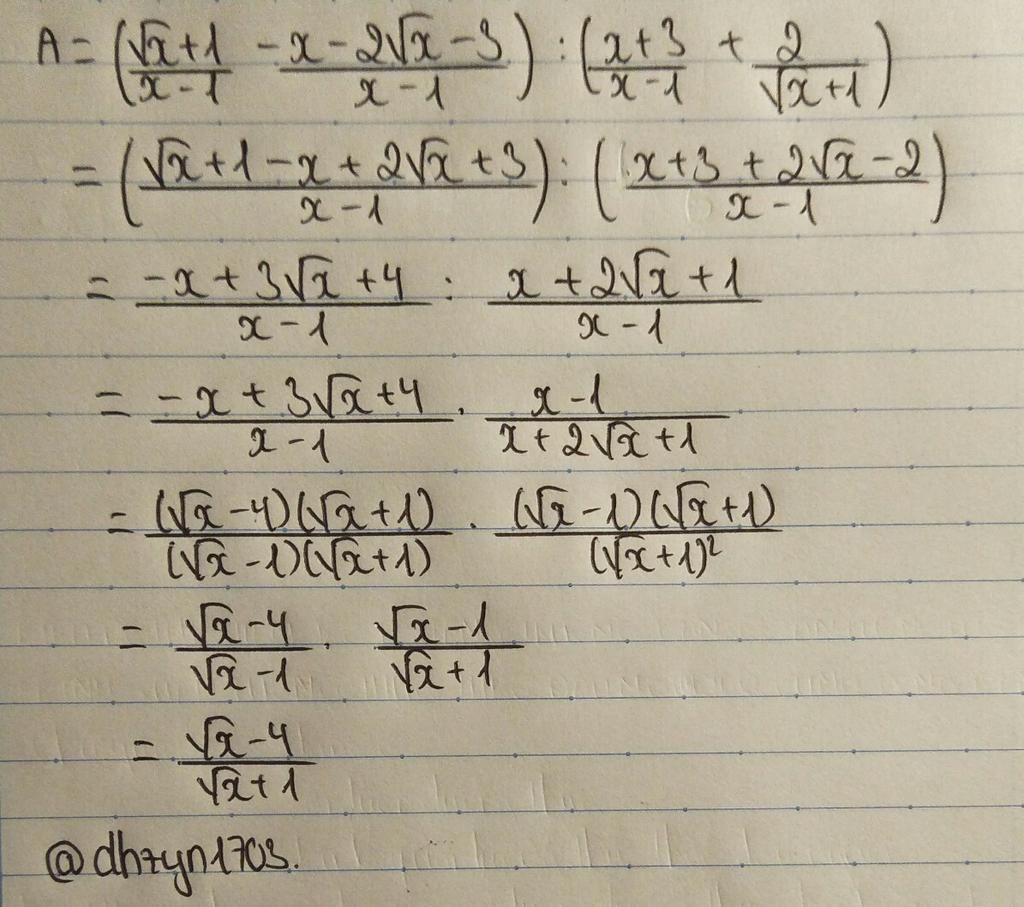 A = (√x+1/x-1 - x-2√x-3/x-1) : (x+3/x-1 + 2/√x+1)
= (√x+1-x+2√x+3/x-1) : (x+3+2√x-2/x-1)
= -x+3√x+4/x-1 : x+2√x+1/x-1
= -x+3√x+4/x-1 . x-1/x+2√x+1
= (√x-4)(√x+1)/(√x-1)(√x+1) . (√x-1)(√x+1)/(√x+1)²
= √x-4/√x-1 . √x-1/√x+1
= √x-4/√x+1
@dhzyn1703.